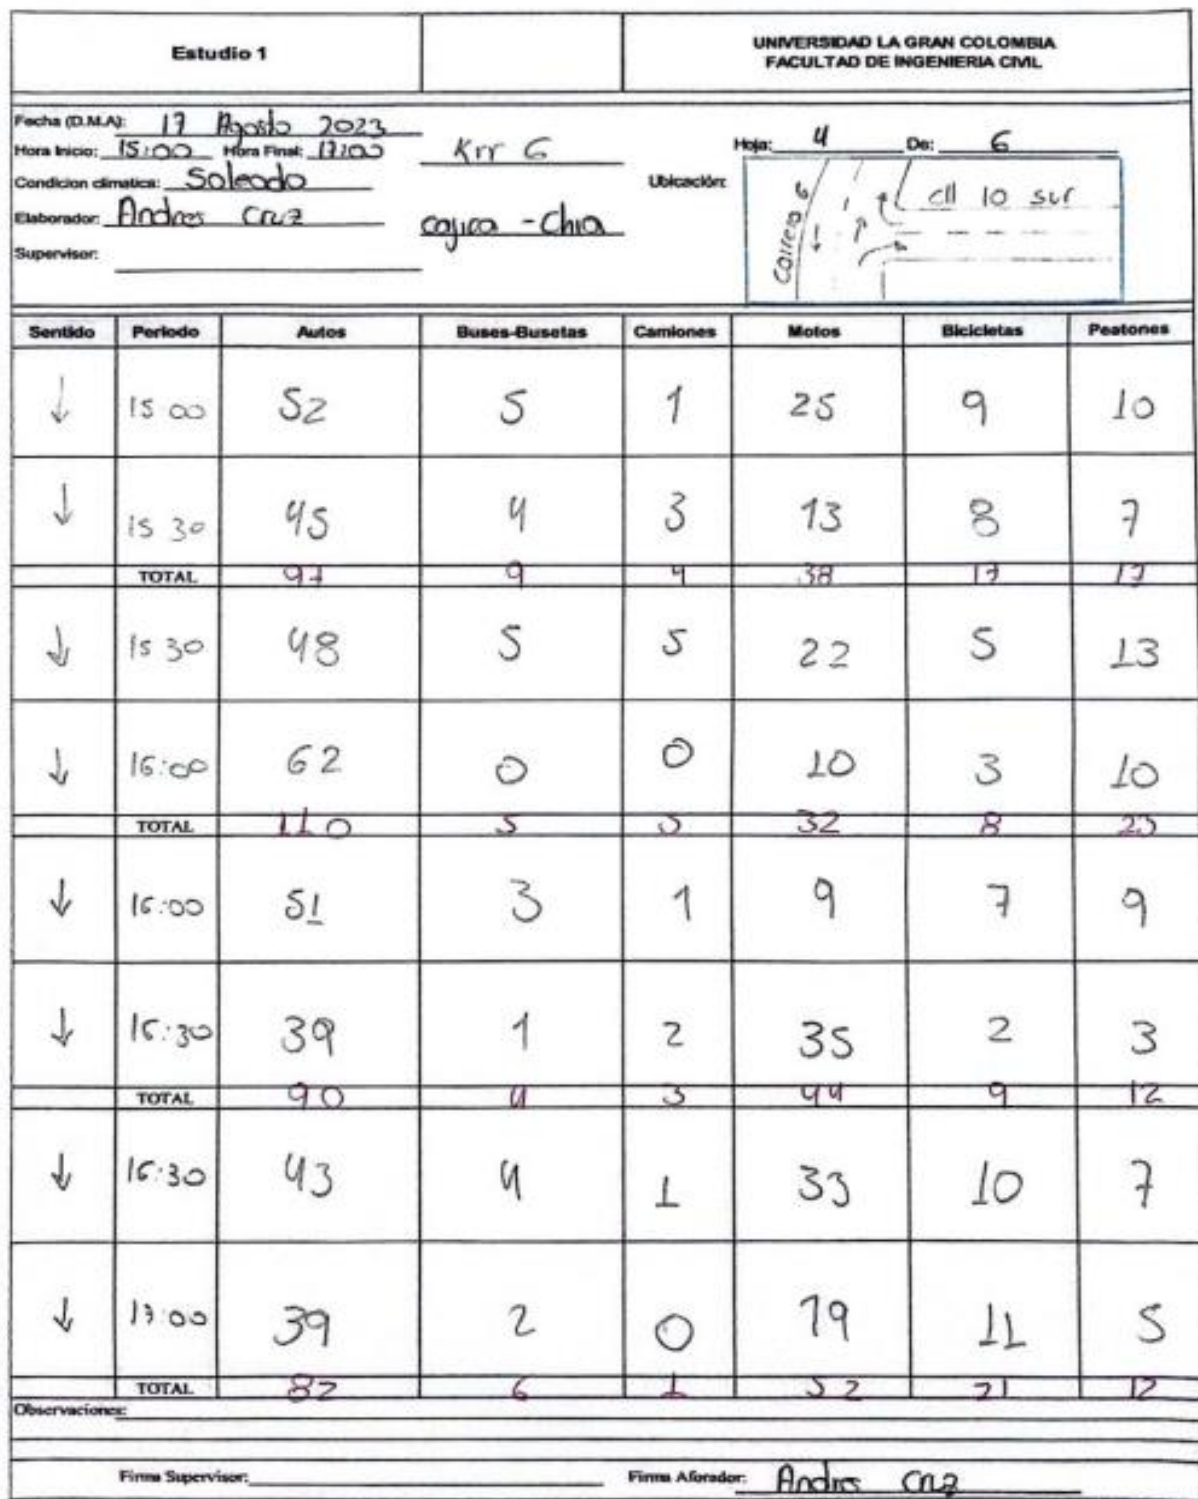 Estudio 1
UNIVERSIDAD LA GRAN COLOMBIA
FACULTAD DE INGENIERIA CIVIL
Fecha (D.M.A): 17 Agosto 2023
Hora Inicio: 15:00 Hora Final: 17:00
Krr 6
Hoja: 4 De: 6
Condicion climatica: Soleado
Ubicación:
Carrera 6
cll 10 sur
Elaborador: Andres Cruz
cajica - Chia
Supervisor:
Sentido Periodo Autos Buses-Busetas Camiones Motos Bicicletas Peatones
↓ 15:00 52 5 1 25 9 10
↓ 15 30 45 4 3 13 8 7
TOTAL 97 9 4 38 17 17
↓ 15 30 48 5 5 22 5 13
↓ 16:00 62 0 0 10 3 10
TOTAL 110 5 5 32 8 23
↓ 16:00 51 3 1 9 7 9
↓ 16:30 39 1 2 35 2 3
TOTAL 90 4 3 44 9 12
↓ 16:30 43 4 1 33 10 7
↓ 17:00 39 2 0 19 11 5
TOTAL 82 6 1 52 21 12
Observaciones:
Firma Supervisor: Firma Aforador: Andres Cruz